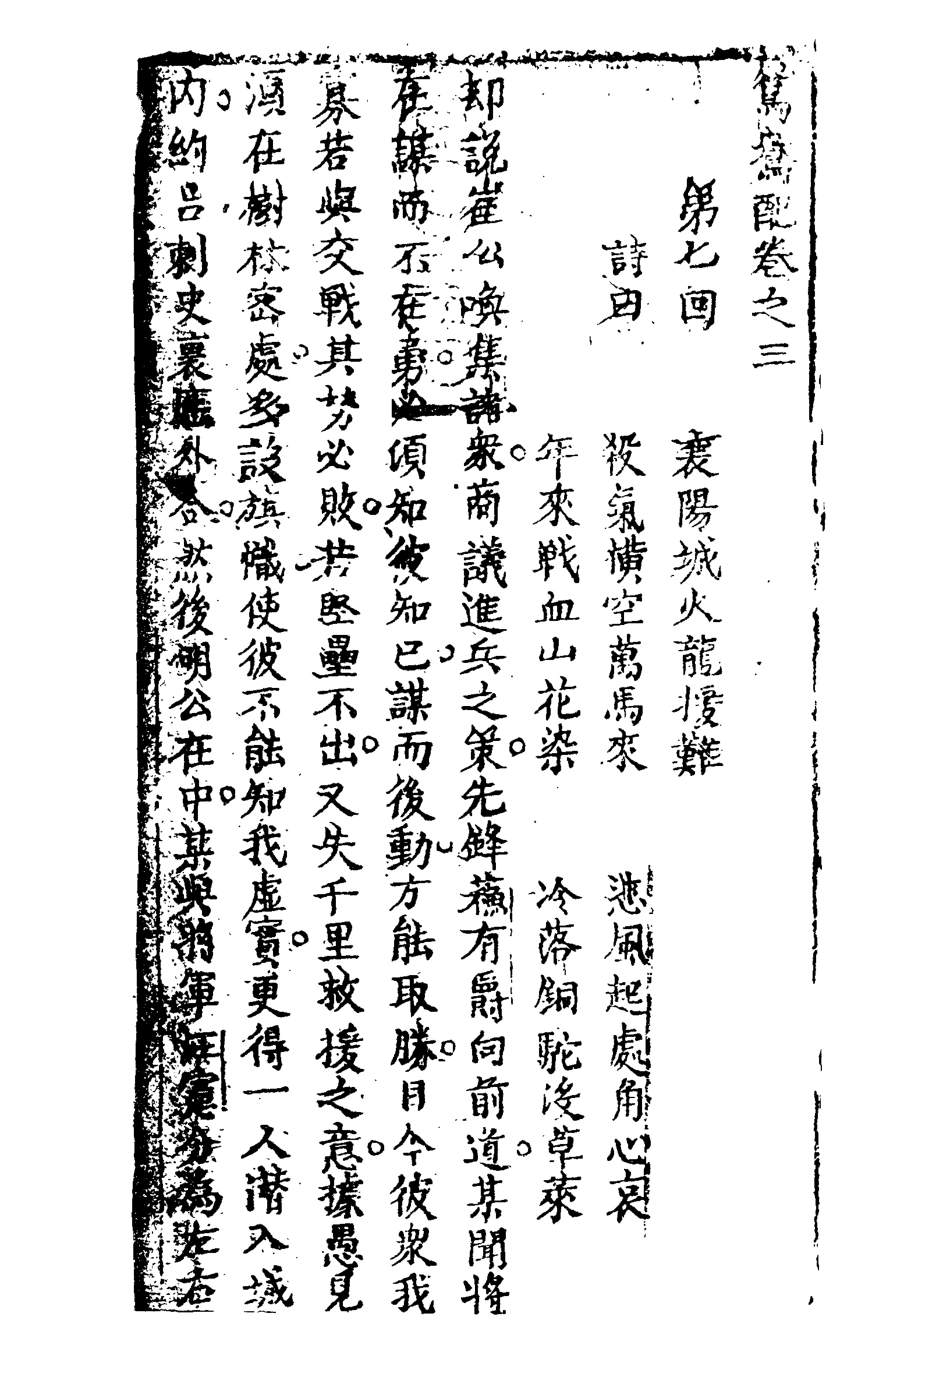 鴛鴦配卷之三
第七回　襄陽城火龍援難
詩曰　殺氣橫空萬馬來　悲風起處角心哀
年來戰血山花染　冷落銅駝沒草萊
却說崔公喚集諸衆。商議進兵之策。先鋒蘓有爵向前道。某聞將
在謀而不在勇。必須知彼知已。謀而後動。方能取勝。目今彼衆我
寡若與交戰其势必敗。若堅壘不出。又失千里救援之意。據愚見
須在樹林密處。多設旗幟使彼不能知我虛實。更得一人潛入城
内。約吕刺史裏應外合。然後明公在中。某與將軍任寔分為左右